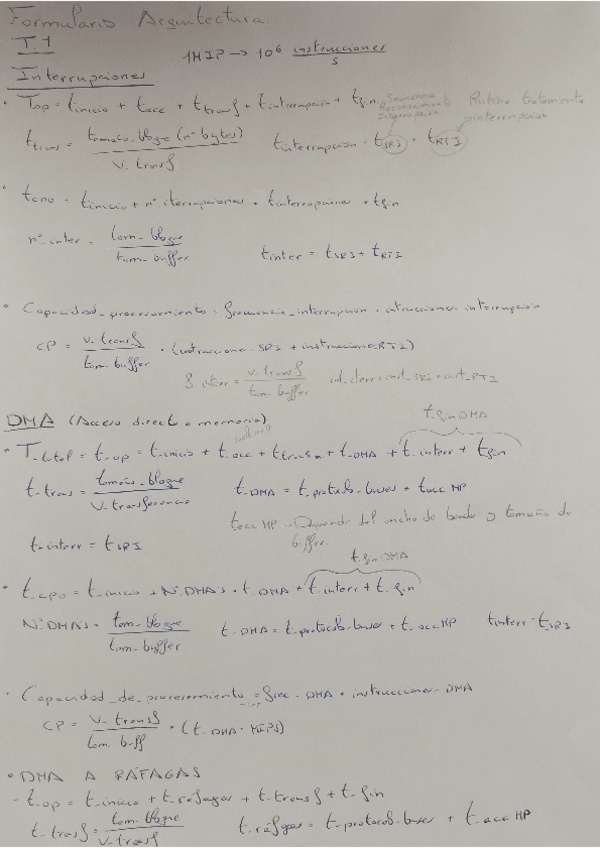 Formulario Arquitectura
T1
1MIP → 10⁶ instrucciones / s
Interrupciones
• Top = t_inicio + t_acc + t_transf + t_interrupcion + t_fin
Secuencia Reconocimiento Interrupcion
Rutina tratamiento interrupcion
t_trans = tamaño_bloque (nº bytes) / v_transf
t_interrupcion = t_SRI + t_RTI
• t_cpu = t_inicio + nº interrupciones · t_interrupciones + t_fin
nº_inter = tam_bloque / tam_buffer
t_inter = t_SRI + t_RTI
• Capacidad_procesamiento = frecuencia_interrupcion · intrucciones_interrupcion
CP = v_transf / tam_buffer · (instruccione_SRI + instruccionesRTI)
f_interr = v_transf / tam_buffer
DMA (Acceso directo a memoria)
t_finDMA
• T_total = t_op = t_inicio + t_acc + t_transm + t_DMA + t_interr + t_fin
t_trans = tamaño_bloque / v_transferencia
t_DMA = t_protocolo_buses + t_acc MP
t_acc MP → Depende del ancho de banda y tamaño de buffer.
t_interr = t_SRI
t_finDMA
• t_cpu = t_inicio + NºDMAs · t_DMA + t_interr + t_fin
NºDMAs = tam_bloque / tam_buffer
t_DMA = t_protocolo_buses + t_acc MP
t_interr = t_SRI
• Capacidad_de_procesamiento = frec_DMA · instrucciones_DMA
CP = v_transf / tam_buff · (t_DMA · MIPS)
• DMA A RÁFAGAS
- t_op = t_inicio + t_ráfagas + t_transf + t_fin
t_trasf = tam_bloque / v_transf
t_ráfagas = t_protocolo_buses + t_acc MP